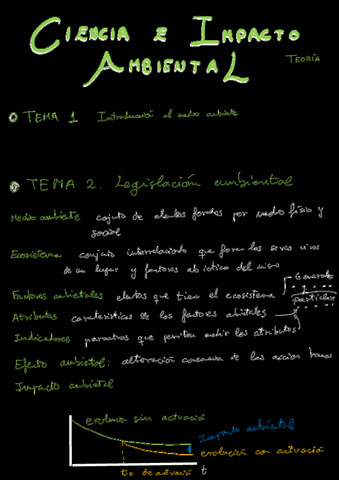 CIENCIA E IMPACTO
AMBIENTAL
TEORÍA
TEMA 1 Introducción al medio ambiente
TEMA 2. Legislación ambiental
Medio ambiente conjuto de por medio físico y
social
Ecosistema conjunto interrelacionado que forma los seres vivos
de un lugar y factores abiótica del
Factores ambietales que tien el ecosistema Generales
particulares
Atributos características de los factores abietales
Indicadores parametros que permiten medir los atributos
Efecto ambiental: alteración de las accion
Impacto ambietal
evolucion sin actuació
Impacto ambietal
evolució co actuació
to de actuació t